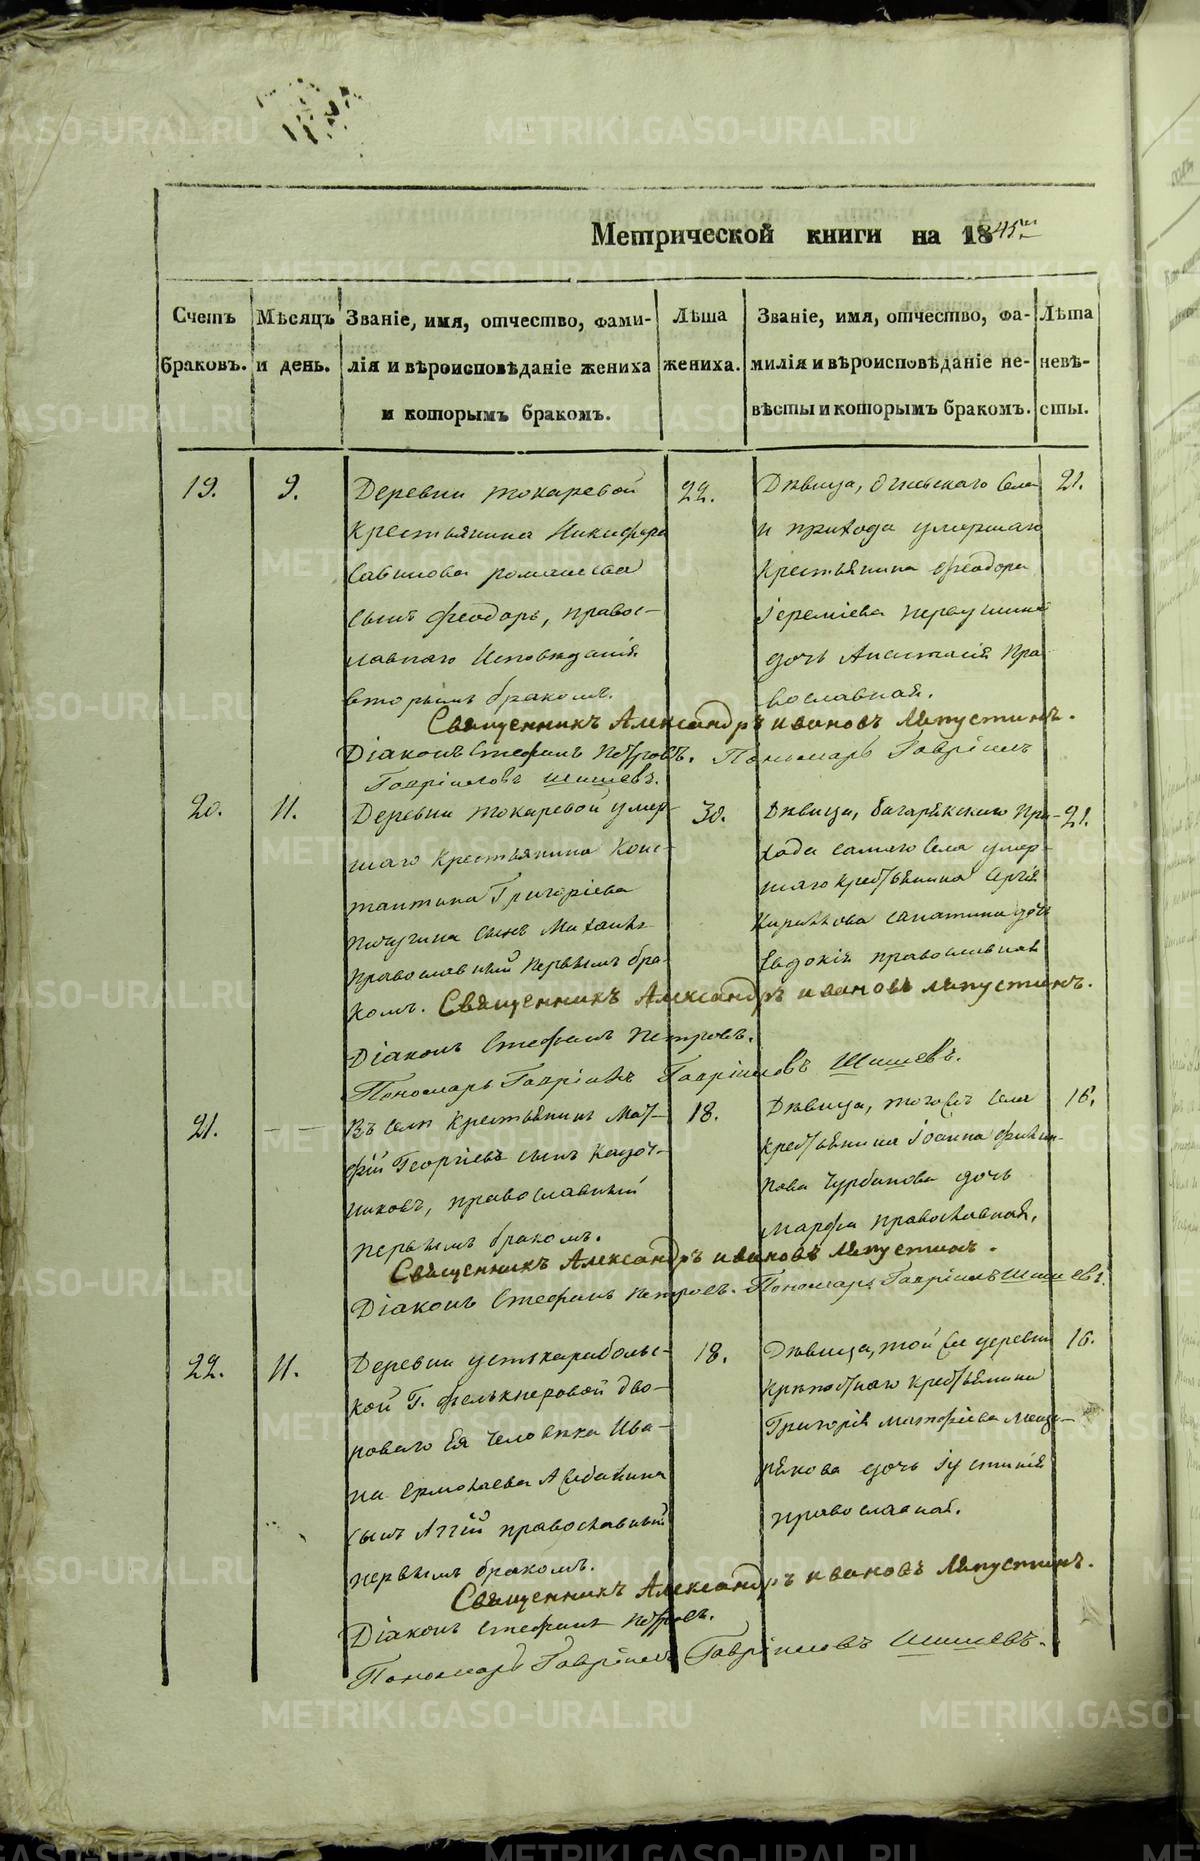 Метрической книги на 1845й
Счетъ
браковъ.
Мѣсяцъ
и день.
Званіе, имя, отчество, фами-
лія и вѣроисповѣданіе жениха
и которымъ бракомъ.
Лѣта
жениха.
Званіе, имя, отчество, фа-
милія и вѣроисповѣданіе не-
вѣсты и которымъ бракомъ.
Лѣта
невѣ-
сты.
19.
9.
Деревни токаревой
крестьянина Никифора
Савинова
сынъ феодоръ, правос-
лавнаго Исповѣданія
вторымъ бракомъ.
22.
Дѣвица, Села
и прихода умершаго
крестьянина феодора
Іереміева первушина
дочь Анастасія Пра-
вославная.
21.
Священникъ Александръ ивановъ Ляпустинъ.
Діаконъ Стефанъ Петровъ. Пономарь Гавріилъ
Гавріиловъ Шишевъ.
20.
11.
Деревни токаревой умер-
шаго крестьянина Конс-
тантина Григоріева
Пичугина сынъ Михаилъ
православный первымъ бра-
комъ.
30.
Дѣвица, багарякскаго При-
хода самаго Села умер-
шаго крестьянина Сергія
Кирилова дочь
Евдокія православная
21.
Священникъ Александръ ивановъ ляпустинъ.
Діаконъ Стефанъ Петровъ.
Пономарь Гавріилъ Гавріиловъ Шишевъ.
21.
— —
Въ селѣ Крестьянинъ Мат-
фій Георгіевъ сынъ
православный
первымъ бракомъ.
18.
Дѣвица, тогожъ села
крестьянина Іоанна филип-
пова Чурбанова дочь
Марфа православная,
16.
Священникъ Александръ ивановъ Ляпустинъ.
Діаконъ Стефанъ Петровъ. Пономарь Гавріилъ Шишевъ.
22.
11.
Деревни устькараболь-
кой Г. фелькнеровой дво-
роваго Ея человѣка Ива-
на Ермолаева
сынъ Аггій православный
первымъ бракомъ.
18.
Дѣвица, той же деревни
крѣпостнаго крестьянина
Григорія Матфіева Меще-
рякова дочь Іустинія
православная.
16.
Священникъ Александръ ивановъ Ляпустинъ.
Діаконъ Стефанъ Петровъ.
Пономарь Гавріилъ Гавріиловъ Шишевъ.
METRIKI.GASO-URAL.RU